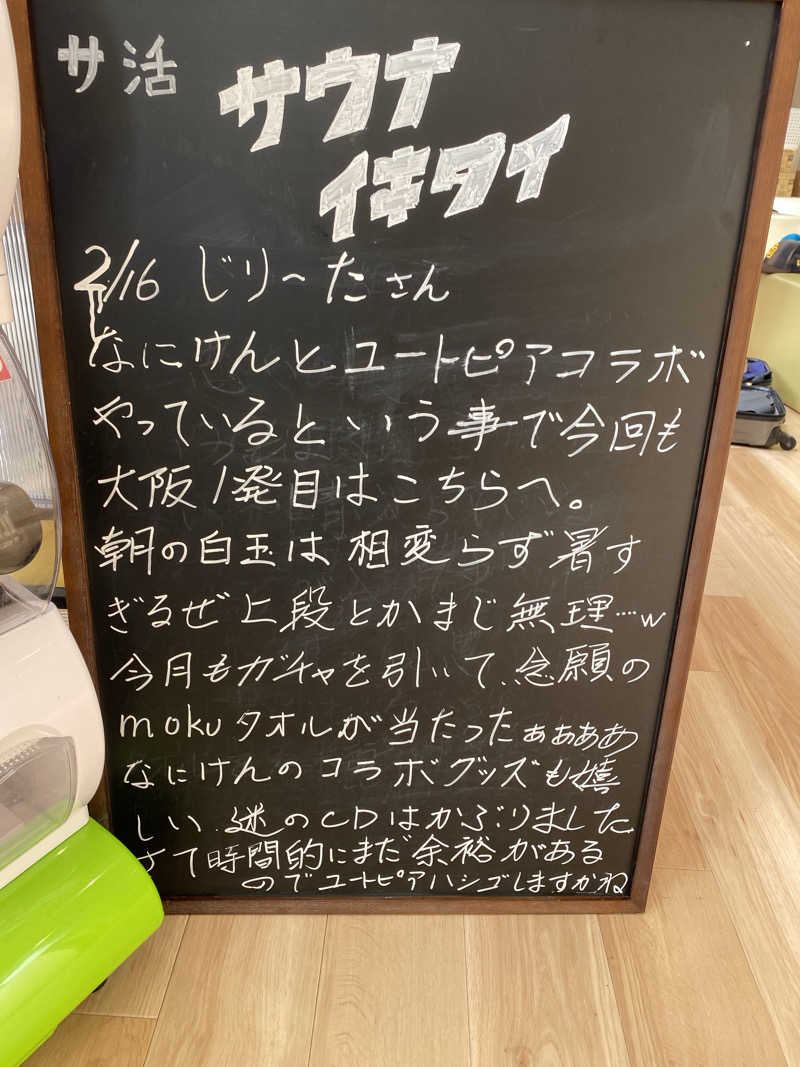 サ活
サウナ
イキタイ
2/16 じりーたさん
なにけんとユートピアコラボ
やっているという事で今回も
大阪1発目はこちらへ。
朝の白玉は相変らず暑す
ぎるぜ上段とかまじ無理…w
今月もガチャを引いて、念願の
mokuタオルが当たったぁぁぁぁ
なにけんのコラボグッズも嬉
しい、謎のCDはかぶりました
さて時間的にまだ余裕がある
のでユートピアハシゴしますかね